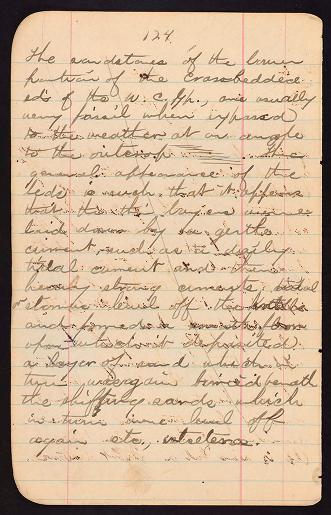 124
The sandstones of the lower
portion of the Crossbedded
eds of the W. C. Gp., are usually
very fissil when exposed
to the weather at an angle
to the outcrop The
general appearance of the
eds is such that it appears
that the layers were
laid down by a gentle
current, such as a daily
tidal current and then
strong currents
level off the
and formed a
upon which it deposited
a layer of sand which in
turn was again buried beneath
the shifting sands, which
in turn were level off
again etc., etcetera.